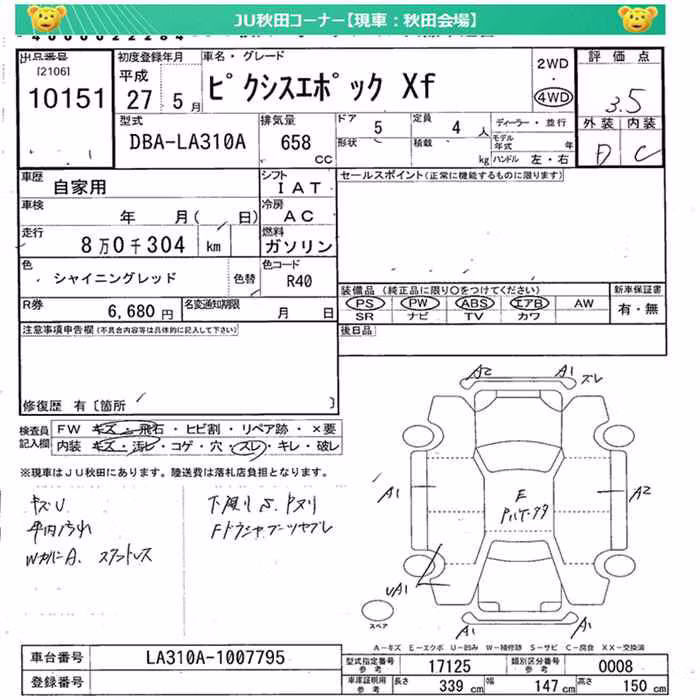 JU秋田コーナー【現車：秋田会場】
出品番号
[2106]
10151
初度登録年月
平成
27 5月
車名・グレード
ピクシスエポック Xf
2WD
・
4WD
評価点
3.5
外装 内装
D C
型式
DBA-LA310A
排気量
658
CC
ドア
5
定員
4 人
ディーラー・並行
形状
積載
kg
モデル年式 年
ハンドル 左・右
車歴
自家用
シフト
IAT
セールスポイント(正常に機能するものに限ります)
車検
年 月( 日)
冷房
AC
走行
8万0千304 km
燃料
ガソリン
色
シャイニングレッド
色替
色コード
R40
装備品 (純正品に限り○をつけてください)
新車保証書
PS PW ABS エアB AW
有・無
SR ナビ TV カワ
R券
6,680 円
名変通知期限
月 日
後日品
注意事項申告欄 (不具合内容等は具体的に記入して下さい)
修復歴 有 [箇所 ]
検査員
記入欄
FW キズ・飛石・ヒビ割・リペア跡・×要
内装 キズ・汚レ・コゲ・穴・スレ・キレ・破レ
※現車はJU秋田にあります。陸送費は落札店負担となります。
キズU
下廻りS.
A2 A1 スレ
A1 A2
E
UA1
A1 A1
スペア
A－キズ E－エクボ U－凹み W－補修跡 S－サビ C－腐食 XX－交換済
車台番号
LA310A-1007795
登録番号
型式指定番号
参考
17125
類別区分番号
参考
0008
車庫証明用
参考
長さ 339 cm 幅 147 cm 高さ 150 cm